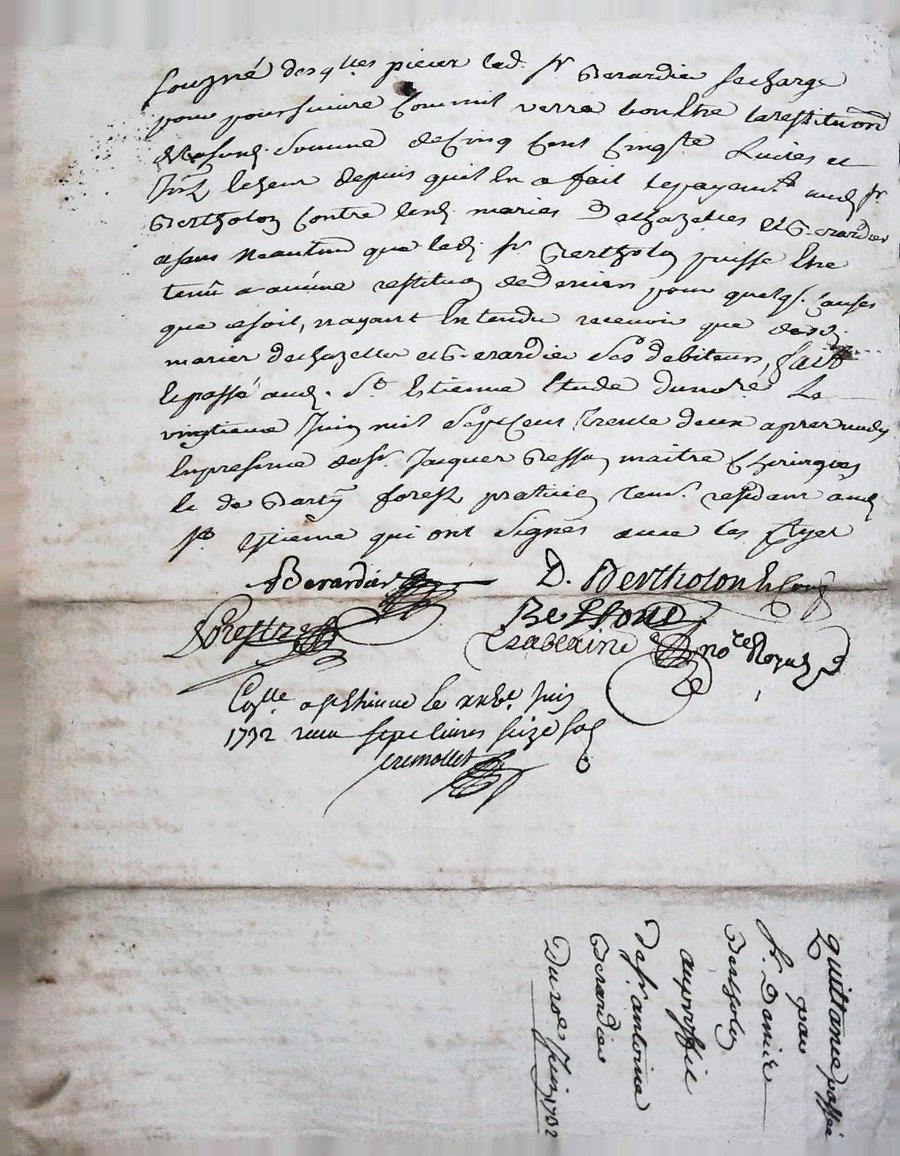 desq.lles pieces led. Sr Berardier se charge
pour poursuivre comme il verra bon être la restitu͠on
somme de cinq cent cinq.te livres et
depuis qu'il en a fait le payem.t aud. Sr
Bertholon contre lesd. mariés Dechazelles et Berardier
et sans neantm. que led. Sr Bertholon puisse etre
tenu a aucune restitu͠on de deniers pour quelq. causes
que ce soit, n'ayant entendu recevoir que desd.
mariés dechazelles et Berardier ses debiteurs, fait
et passé aud. St Estienne Etude du no.re Le
vingtieme Juin mil sept cent trente deux apres midy
En presence de Sr Jacques Besson maitre chirurgien
et de forest praticien resident aud.
St Estienne qui ont signés avec les
Berardier D. Bertholon
Besson
no.re Royal
a St Etienne le Juin
1732 receu sept livres seize sols
quittance passée
par
Sr. Damien
Bertholon
au proffit
de Sr. antoine
Berardier
Du 20e Juin 1732